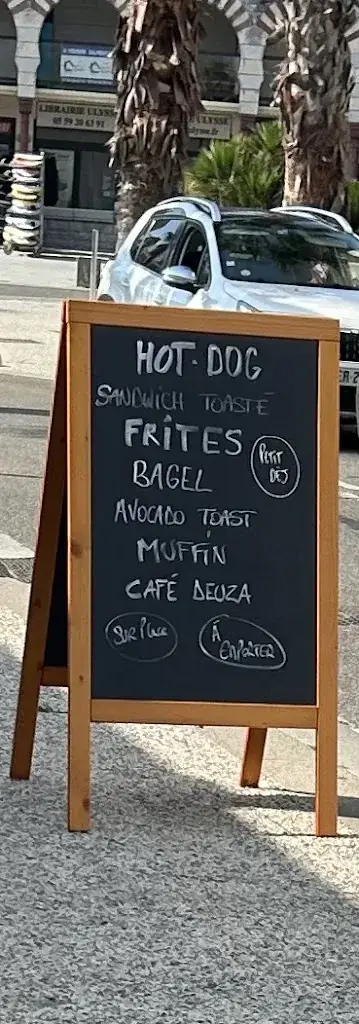 LIBRAIRIE ULYSSE
05 59 20 63 91
HOT.DOG
SANDWICH TOASTÉ
FRÎTES
PETIT
DEJ
BAGEL
AVOCADO TOAST
MUFFIN
CAFÉ DEUZA
SUR PLACE
À
EMPORTER